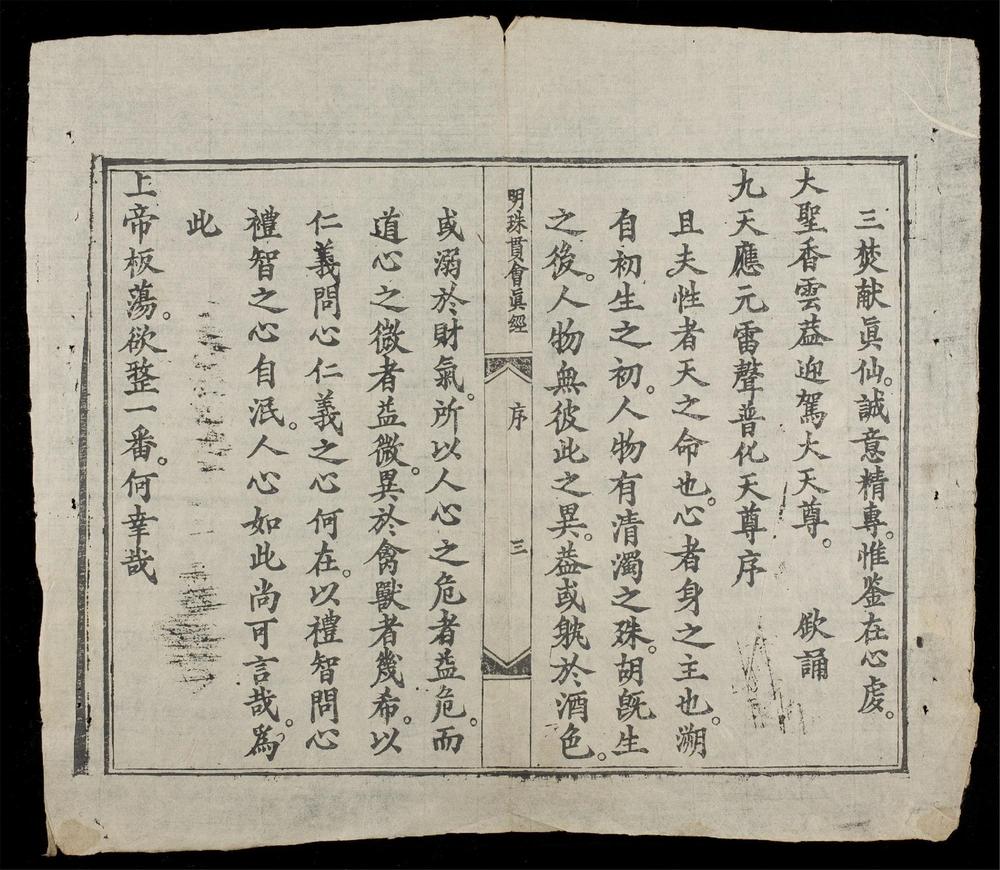 三焚献眞仙。誠意精專。惟鉴在心虔。
大聖香雲葢迎駕大天尊。 欽誦
九天應元雷聲普化天尊序
且夫性者天之命也。心者身之主也。溯
自初生之初。人物有清濁之殊。胡旣生
之後。人物無彼此之異。葢或躭於酒色。
明珠貫會眞經 序 三
或溺於財氣。所以人心之危者益危。而
道心之微者益微。異於禽獸者幾希。以
仁義問心仁義之心何在。以禮智問心
禮智之心自泯。人心如此尚可言哉。爲
此
上帝板蕩。欲整一番。何幸哉